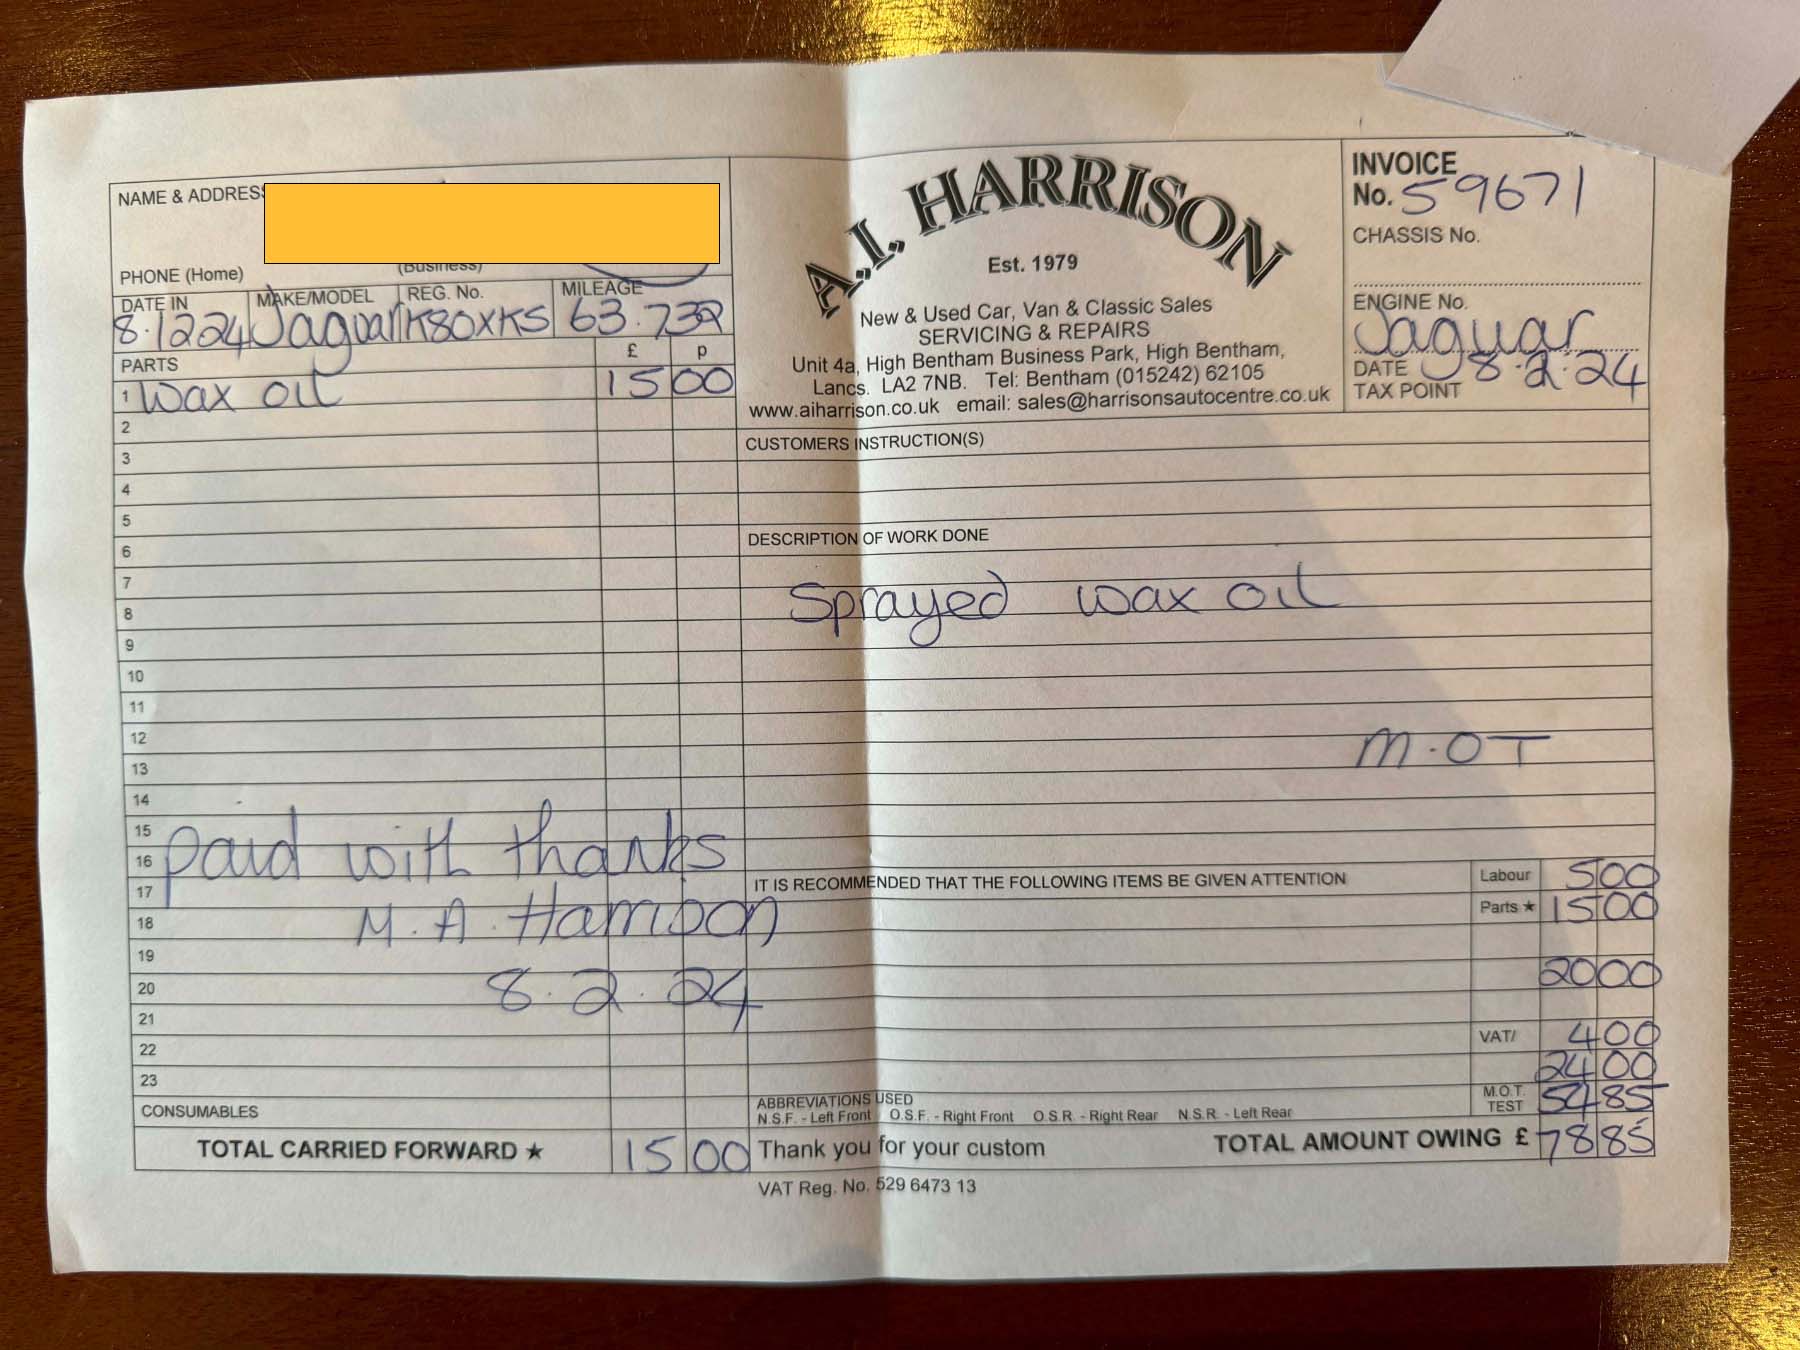 NAME & ADDRESS
PHONE (Home)
(Business)
DATE IN
MAKE/MODEL
REG. No.
MILEAGE
8.1224
Jaguar
K80XKS
63.732
PARTS
£ p
1 Wax oil 15 00
2
3
4
5
6
7
8
9
10
11
12
13
14
15
16
17
18
19
20
21
22
23
paid with thanks
M. A. Harrison
8.2.24
CONSUMABLES
TOTAL CARRIED FORWARD ★ 15 00
A.I. HARRISON
Est. 1979
New & Used Car, Van & Classic Sales
SERVICING & REPAIRS
Unit 4a, High Bentham Business Park, High Bentham,
Lancs. LA2 7NB. Tel: Bentham (015242) 62105
www.aiharrison.co.uk email: sales@harrisonsautocentre.co.uk
INVOICE
No. 59671
CHASSIS No.
ENGINE No.
Jaguar
DATE 8.2.24
TAX POINT
CUSTOMERS INSTRUCTION(S)
DESCRIPTION OF WORK DONE
Sprayed wax oil
M.OT
IT IS RECOMMENDED THAT THE FOLLOWING ITEMS BE GIVEN ATTENTION
Labour 5 00
Parts ★ 15 00
20 00
VAT/ 4 00
24 00
M.O.T.
TEST 54 85
ABBREVIATIONS USED
N.S.F. - Left Front O.S.F. - Right Front O.S.R. - Right Rear N.S.R. - Left Rear
Thank you for your custom
TOTAL AMOUNT OWING £ 78 85
VAT Reg. No. 529 6473 13